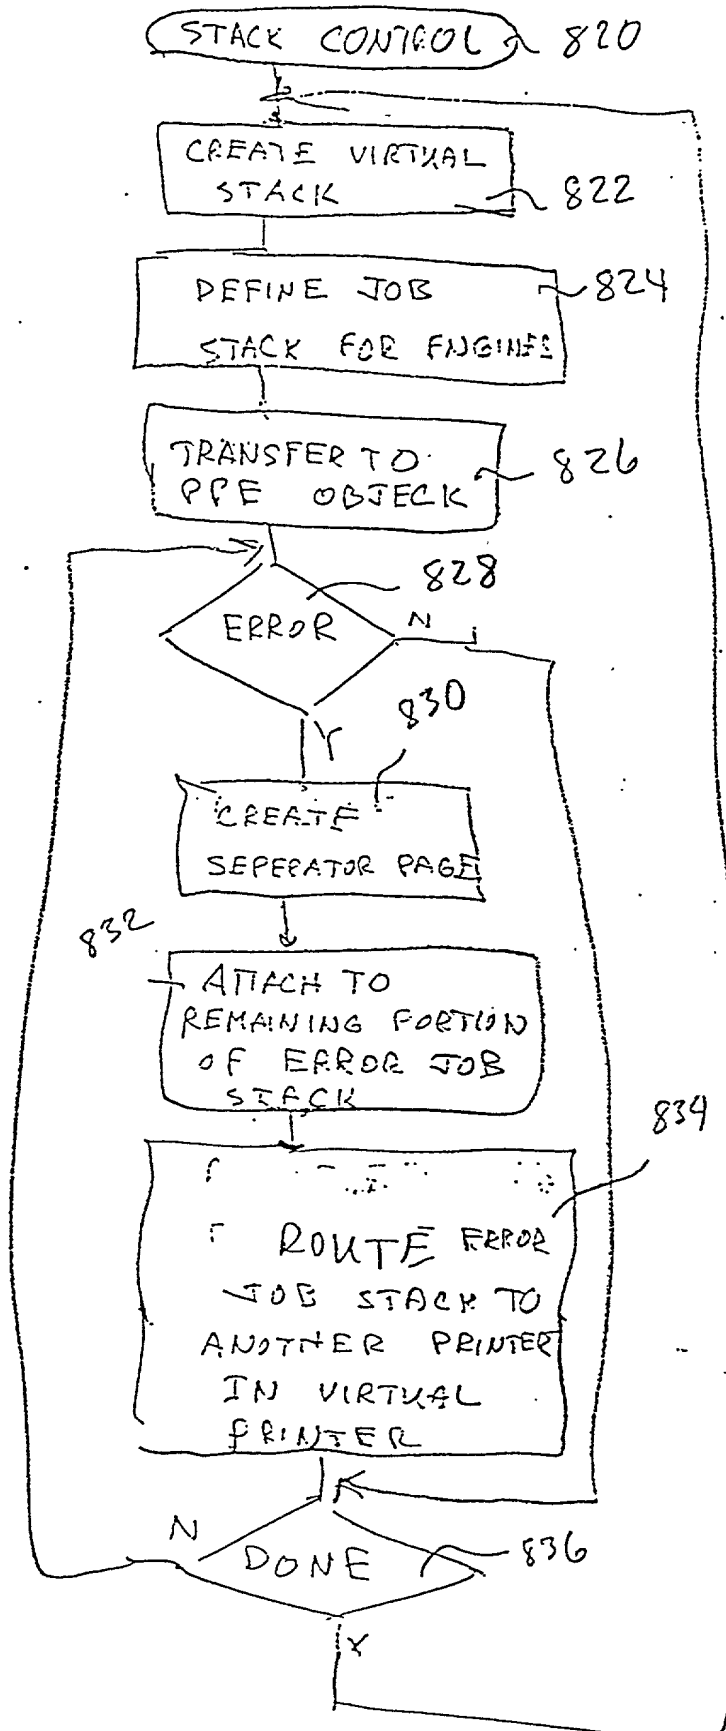 STACK CONTROL 820
CREATE VIRTUAL
STACK 822
DEFINE JOB 824
STACK FOR ENGINES
TRANSFER TO 826
PPE OBJECK
828
ERROR N
Y
830
CREATE
SEPERATOR PAGE
832
ATTACH TO
REMAINING PORTION
OF ERROR JOB
STACK
834
ROUTE ERROR
JOB STACK TO
ANOTHER PRINTER
IN VIRTUAL
PRINTER
N
DONE 836
Y